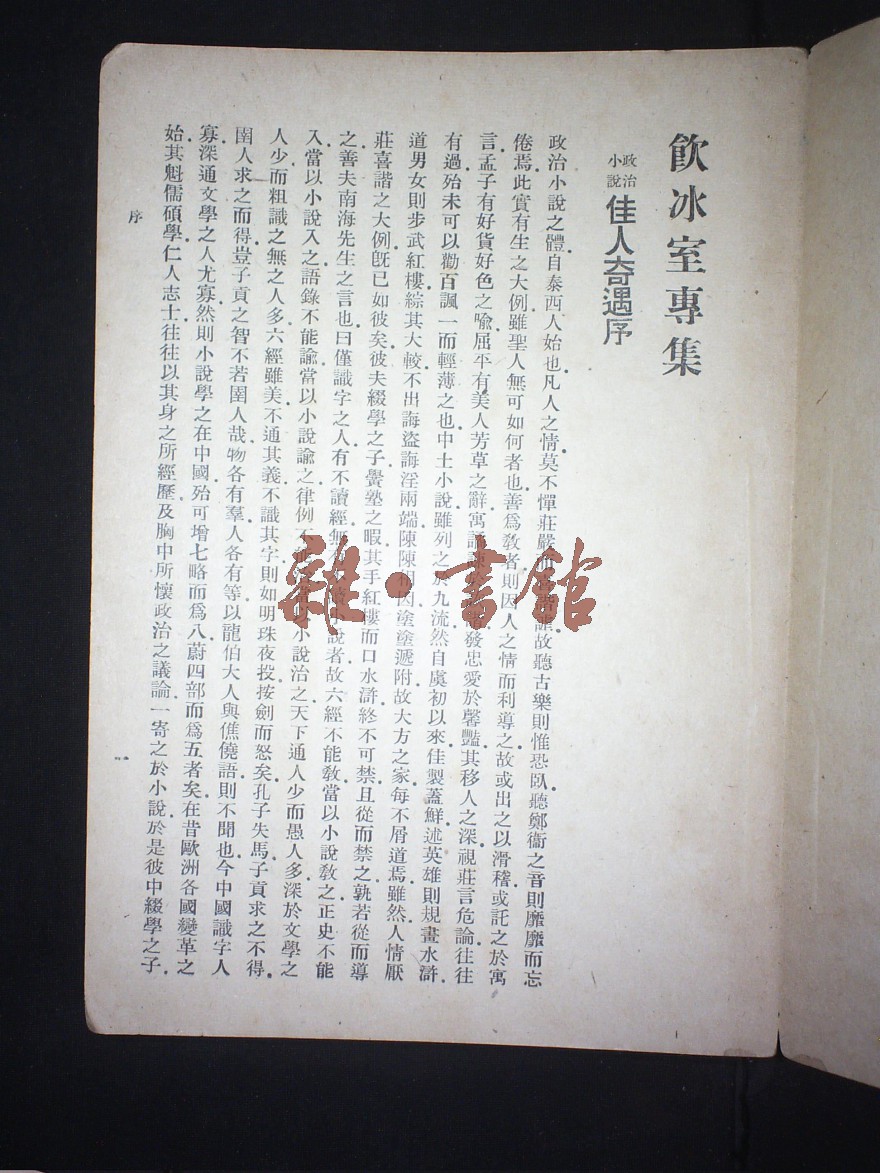 飮冰室專集
政治小說 佳人奇遇序
政治小說之體自泰西人始也凡人之情莫不憚莊嚴而喜諧謔故聽古樂則惟恐臥聽鄭衞之音則靡靡而忘
倦焉此實有生之大例雖聖人無可如何者也善爲敎者則因人之情而利導之故或出之以滑稽或託之於寓
言孟子有好貨好色之喩屈平有美人芳草之辭寓譎諫發忠愛於馨豔其移人之深視莊言危論往往
有過殆未可以勸百諷一而輕薄之也中土小說雖列之於九流然自虞初以來佳製蓋鮮述英雄則規畫水滸
道男女則步武紅樓綜其大較不出誨盜誨淫兩端陳陳相因塗塗遞附故大方之家每不屑道焉雖然人情厭
莊喜諧之大例旣已如彼矣彼夫綴學之子黌塾之暇其手紅樓而口水滸終不可禁且從而禁之孰若從而導
之善夫南海先生之言也曰僅識字之人有不讀經無小說者故六經不能敎當以小說敎之正史不能
入當以小說入之語錄不能諭當以小說諭之律例不小說治之天下通人少而愚人多深於文學之
人少而粗識之無之人多六經雖美不通其義不識其字則如明珠夜投按劍而怒矣孔子失馬子貢求之不得
圉人求之而得豈子貢之智不若圉人哉物各有羣人各有等以龍伯大人與僬僥語則不聞也今中國識字人
寡深通文學之人尤寡然則小說學之在中國殆可增七略而爲八蔚四部而爲五者矣在昔歐洲各國變革之
始其魁儒碩學仁人志士往往以其身之所經歷及胸中所懷政治之議論一寄之於小說於是彼中綴學之子
序
一
雜·書館